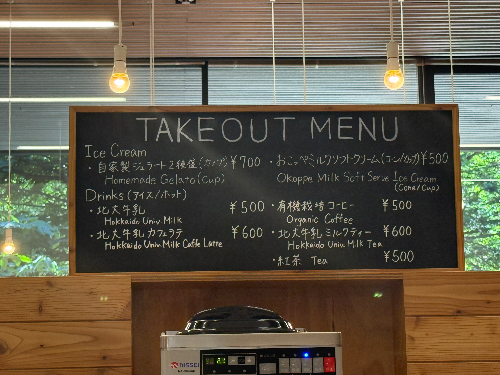 TAKEOUT MENU
Ice Cream
・自家製ジェラート2種盛(カップ) ¥700
Homemade Gelato (Cup)
・おこっぺミルクソフトクリーム(コーン/カップ) ¥500
Okoppe Milk Soft Serve Ice Cream
(Cone/Cup)
Drinks (アイス/ホット)
・北大牛乳 ¥500
Hokkaido Univ Milk
・北大牛乳カフェラテ ¥600
Hokkaido Univ Milk Caffe Latte
・有機栽培コーヒー ¥500
Organic Coffee
・北大牛乳ミルクティー ¥600
Hokkaido Univ Milk Tea
・紅茶 Tea ¥500
NISSEI